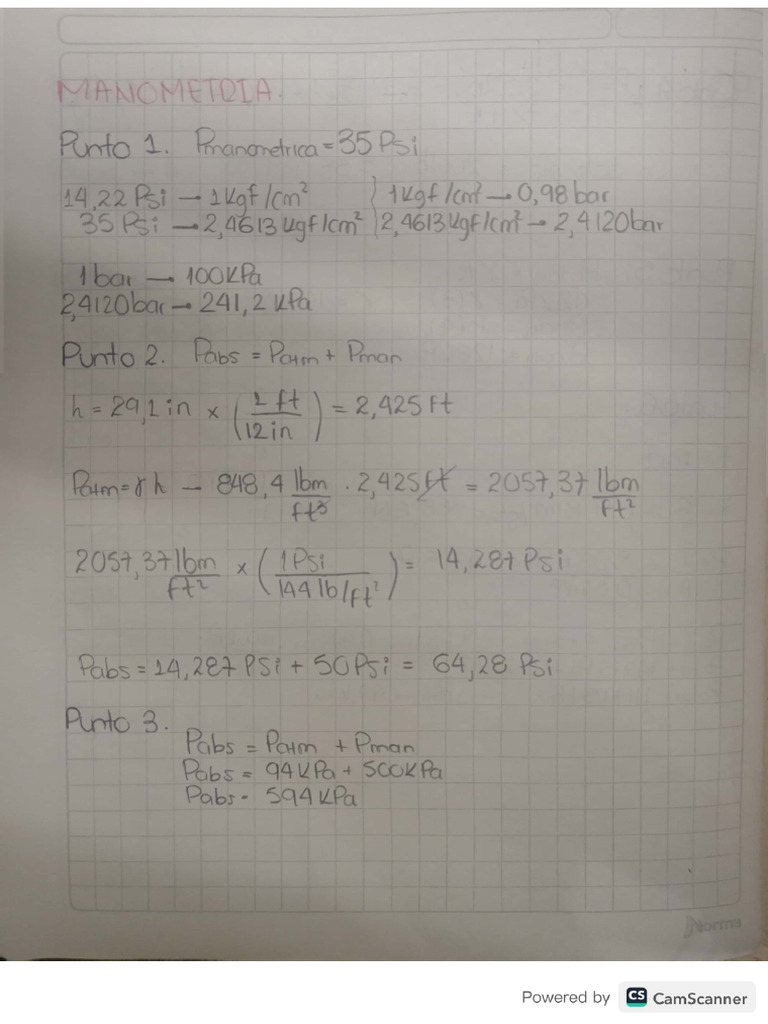 MANOMETRIA.
Punto 1. Pmanometrica = 35 Psi
14,22 Psi → 1 Kgf/cm² } 1 Kgf/cm² → 0,98 bar
35 Psi → 2,4613 Kgf/cm² | 2,4613 Kgf/cm² → 2,4120 bar
1 bar → 100 KPa
2,4120 bar → 241,2 KPa
Punto 2. Pabs = Patm + Pman
h = 29,1 in × (1 ft / 12 in) = 2,425 ft
Patm = γ h – 848,4 lbm/ft³ · 2,425 ft = 2057,37 lbm/ft²
2057,37 lbm/ft² × (1 Psi / 144 lb/ft²) = 14,287 Psi
Pabs = 14,287 PSi + 50 Psi = 64,28 Psi
Punto 3.
Pabs = Patm + Pman
Pabs = 94 KPa + 500 KPa
Pabs - 594 KPa
Norma
Powered by CS CamScanner